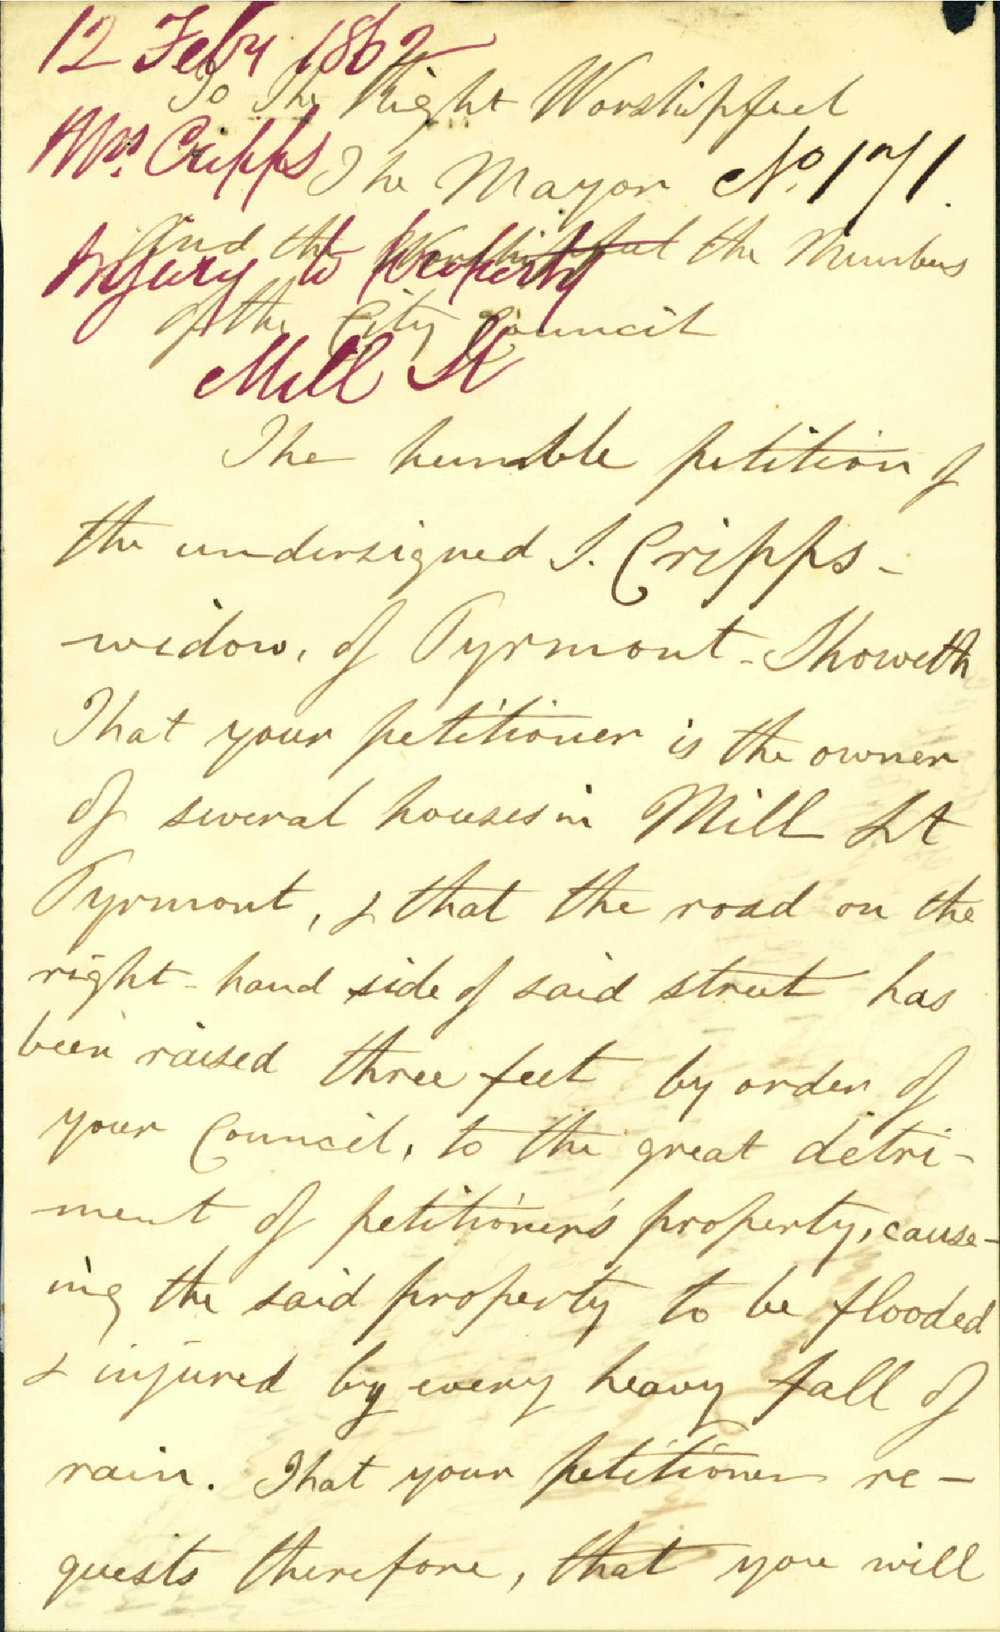 12 Feby 1862
To The Right Worshipful
Mrs. Cripps
The Mayor No. 171.
And the Worshipful the Members
Injury to Property
of the City Council
Mill St
The humble petition of
the undersigned S. Cripps -
widow, of Pyrmont - Showeth
That your petitioner is the owner
of several houses in Mill St
Pyrmont, & that the road on the
right-hand side of said street has
been raised three feet by order of
your Council, to the great detri-
ment of petitioner's property, cause-
ing the said property to be flooded
& injured by every heavy fall of
rain. That your petitioner re-
quests therefore, that you will